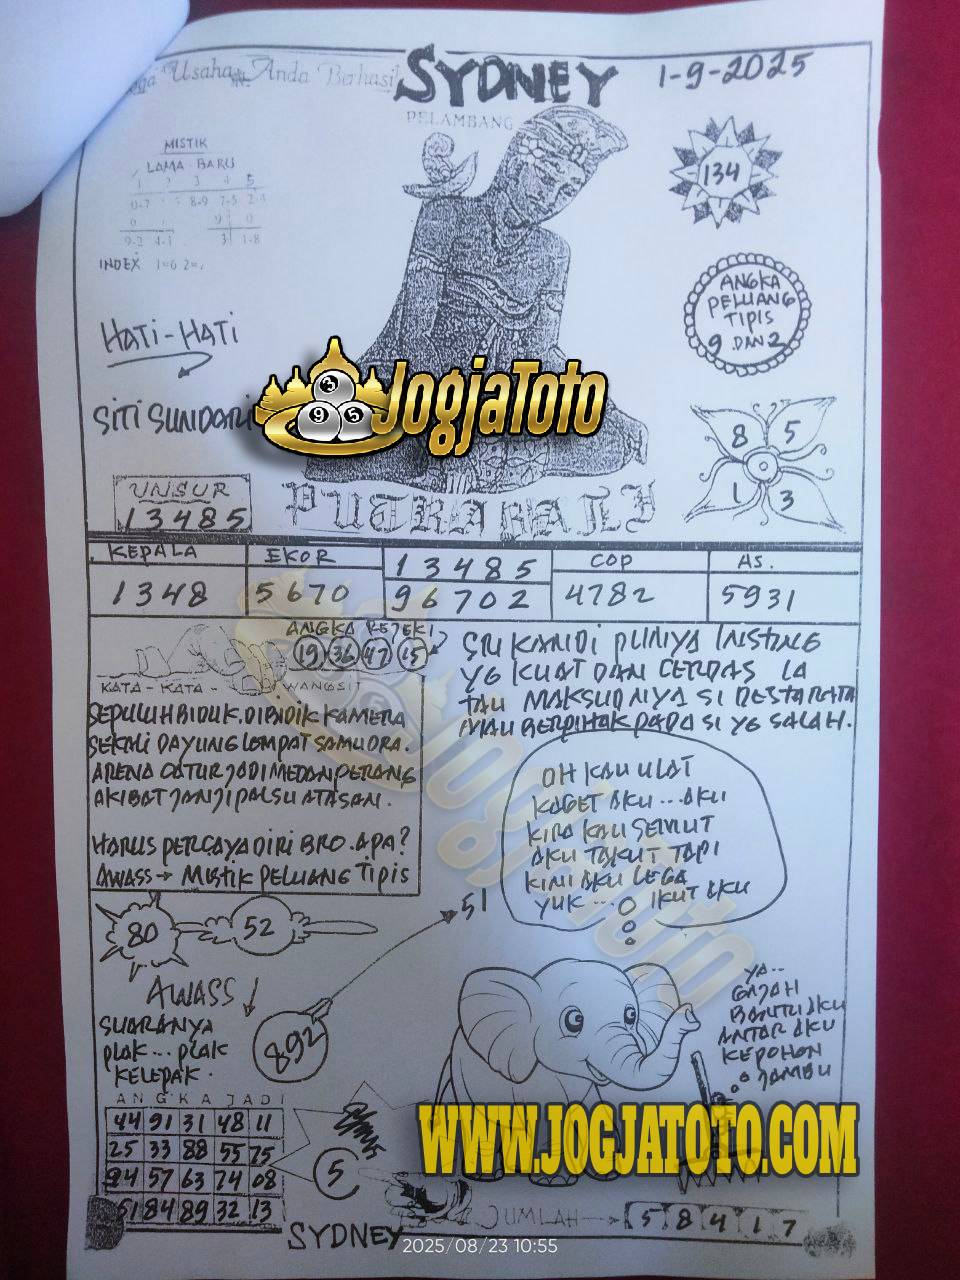 Usaha Anda Berhasil
SYDNEY
1-9-2025
PELAMBANG
MISTIK
LAMA BARU
8-9 7-5
9-2 4-1 3 1-8
INDEX 1=6
134
ANGKA
PELUANG
TIPIS
9 DAN 2
HATI-HATI
SITI SUNDARI
3 9 5
JogjaToto
8 5
1 3
UNSUR
13485
PUTRA BALI
KEPALA EKOR 13485 COP AS.
1348 5670 96702 4782 5931
ANGKA REJEKI
19 36 47 15
KATA-KATA - WANGSIT
SEPULUH BIDUK. DIBIDIK KAMERA
SEKALI DAYUNG LOMPAT SAMUDRA.
ARENA CATUR JADI MEDAN PERANG
AKIBAT JANJI PALSU ATASAN.
HARUS PERCAYA DIRI BRO. APA?
AWASS → MISTIK PELUANG TIPIS
SRI KANDI PUNYA INSTING
YG KUAT DAN CERDAS IA
TAU MAKSUDNYA SI DESTARATA
MAU BERPIHAK PADA SI YG SALAH.
OH KAU ULAT
KAGET AKU ... AKU
KIRA KAU SEMUT
AKU TAKUT TAPI
KINI AKU LEGA
YUK ... IKUT AKU
80
52
51
AWASS !
SUARANYA
PLAK ... PLAK
KELEPAK.
892
YA..
GAJAH
BANTRI AKU
ANTAR AKU
KEPOHON
JAMBU
ANGKA JADI
44 91 31 48 11
25 33 88 55 75
94 57 63 74 08
51 84 89 32 13
5
WWW.JOGJATOTO.COM
JUMLAH → 5 8 4 1 7
SYDNEY
2025/08/23 10:55